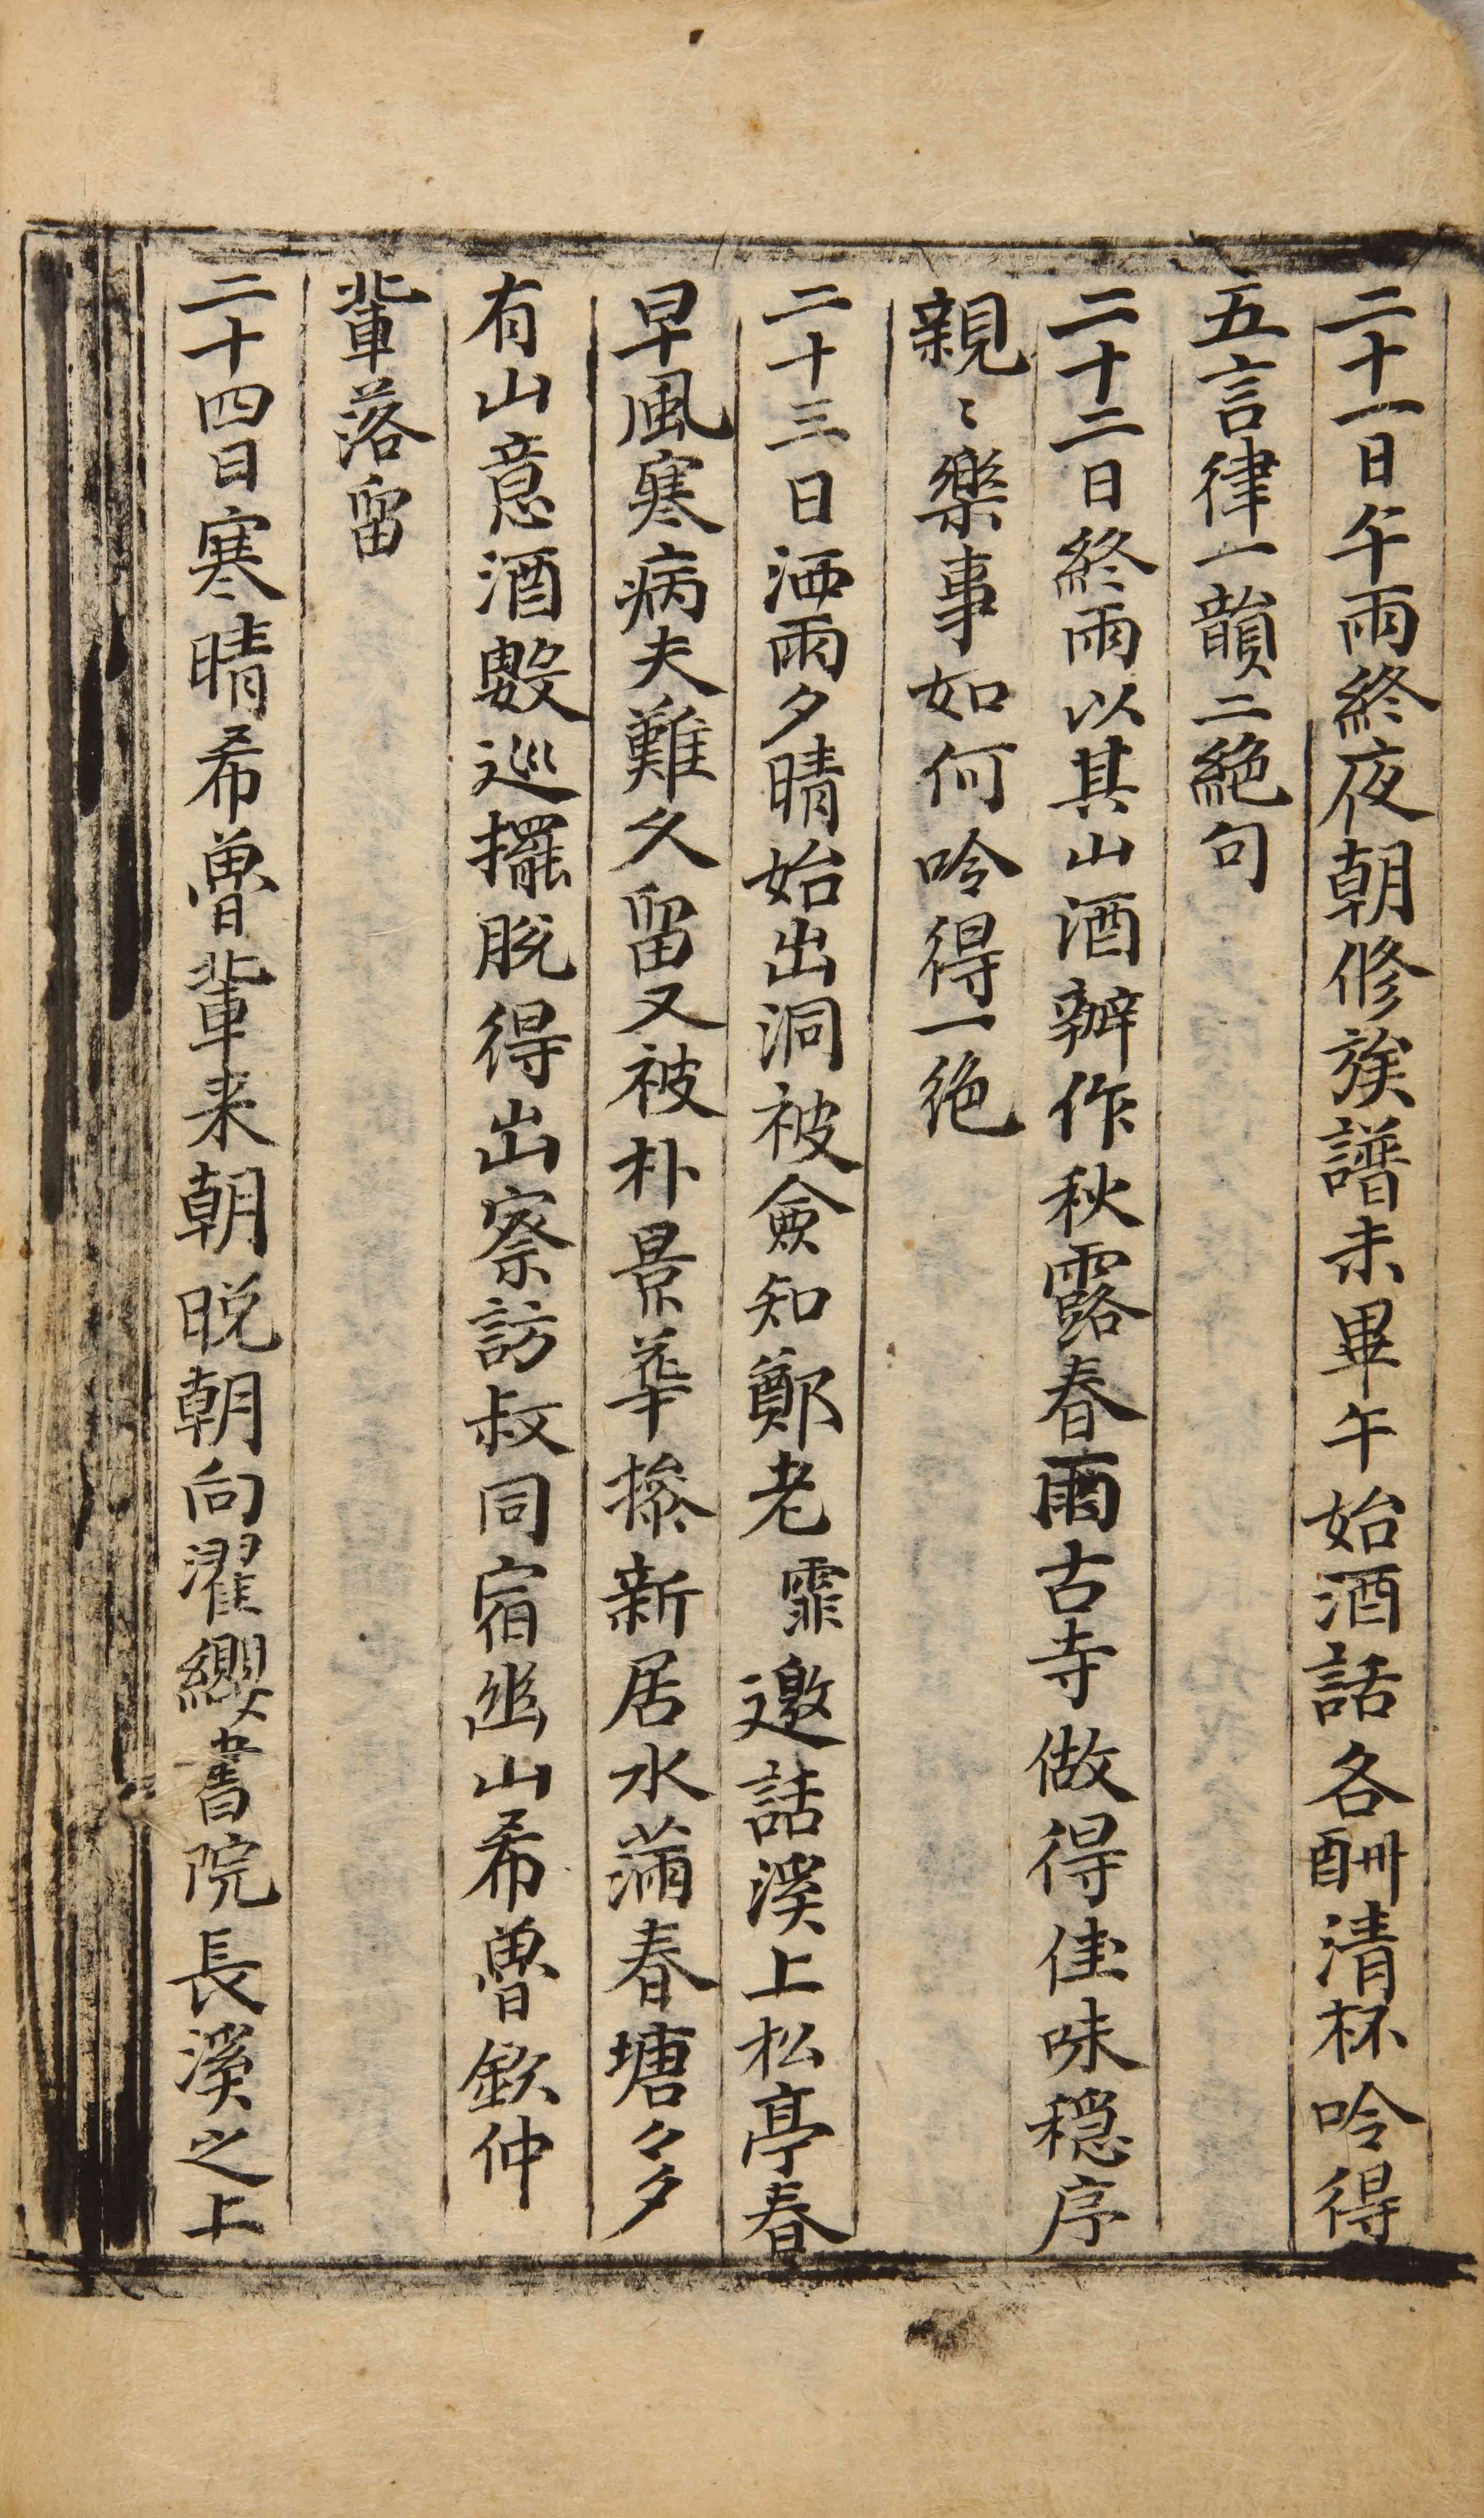 二十一日午雨終夜朝修族譜未畢午始酒話各酬清杯吟得
五言律一韻二絶句
二十二日終雨以其山酒辦作秋露春雨古寺做得佳味穩序
親〻樂事如何吟得一絶
二十三日洒雨夕晴始出洞被僉知鄭老霏邀話溪上松亭春
早風寒病夫難久留又被朴景華搽新居水滿春塘々多
有山意酒數巡擺脫得出察訪叔同宿出山希魯欽仲
輩落留
二十四日寒晴希魯輩来朝晚朝向濯纓書院長溪之上